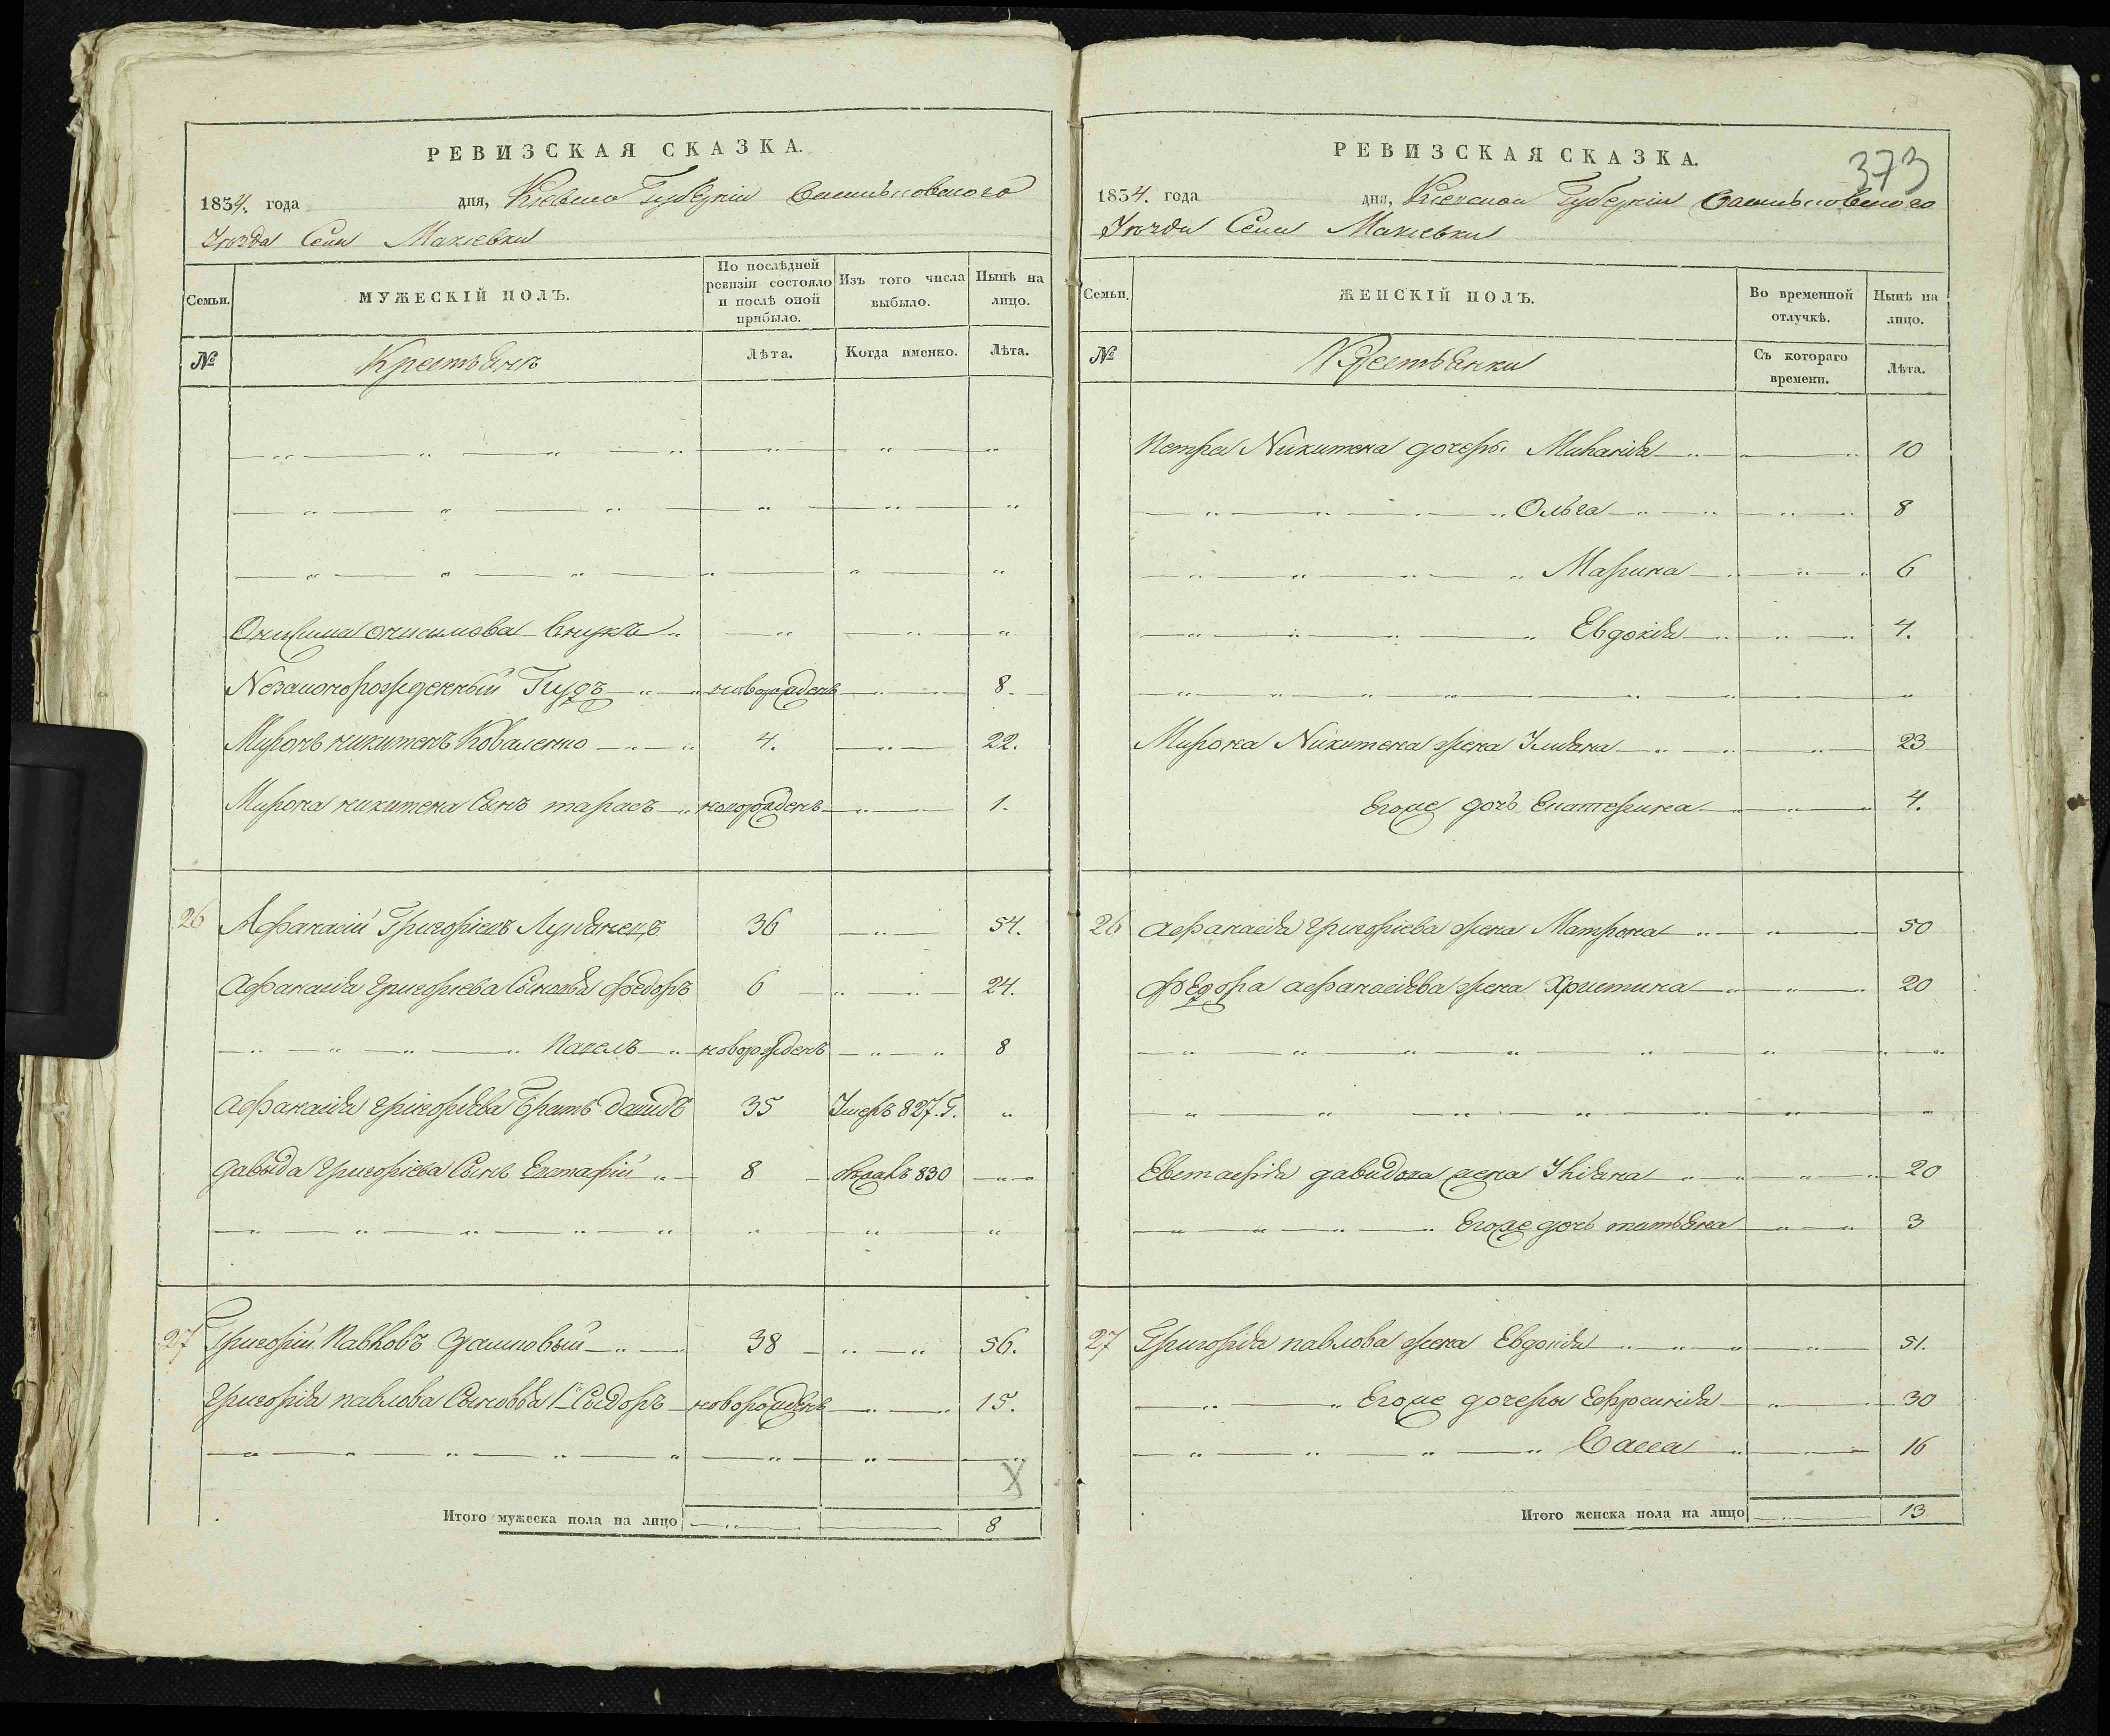 РЕВИЗСКАЯ СКАЗКА.
1834. года дня, Киевско Губерніи Васильковского
Уѣзда Села Макіевки
Семьи. МУЖЕСКІЙ ПОЛЪ. По послѣдней ревизіи состояло и послѣ оной прибыло. Изъ того числа выбыло. Нынѣ на лицо.
№ Крестьянъ Лѣта. Когда именно. Лѣта.
Внукъ
Незаконорожденный новорожденъ 8.
Миронъ никитенъ Коваленко 4. 22.
Мирона никитена Сынъ тарасъ 1.
26 Афанасій Григоріевъ 36 54.
Афанасія Григоріева Сыновья Федоръ 6 24.
Павелъ новорожденъ 8
Афанасія Григорієва Братъ Давидъ 35 Умеръ 827. Г.
Давыда Григоріева Сынъ Евстафій 8 830
27 Григорій Павловъ 38 56.
Григорія павлова Сыновья 1й Сыдоръ новорожденъ 15.
Итого мужеска пола на лицо 8
373
РЕВИЗСКАЯ СКАЗКА.
1834. года дня, Киевской Губерніи Васильковского
Уѣзда Села Макіевки
Семьи. ЖЕНСКІЙ ПОЛЪ. Во временной отлучкѣ. Нынѣ на лицо.
№ Крестьянки Съ котораго времени. Лѣта.
Петра Никитена дочеры 10
Ольга 8
Марина 6
Евдокія 4.
Мирона Никитена жена Ульяна 23
Егоже дочь Екатерина 4.
26 Афанасія Григоріева жена Матрона 50
Федора афанасіева жена Христина 20
Евстафія давидова жена 20
Егоже дочь татьяна 3
27 Григорія павлова жена Евдокія 51.
Егоже дочеры Ефросинія 30
16
Итого женска пола на лицо 13